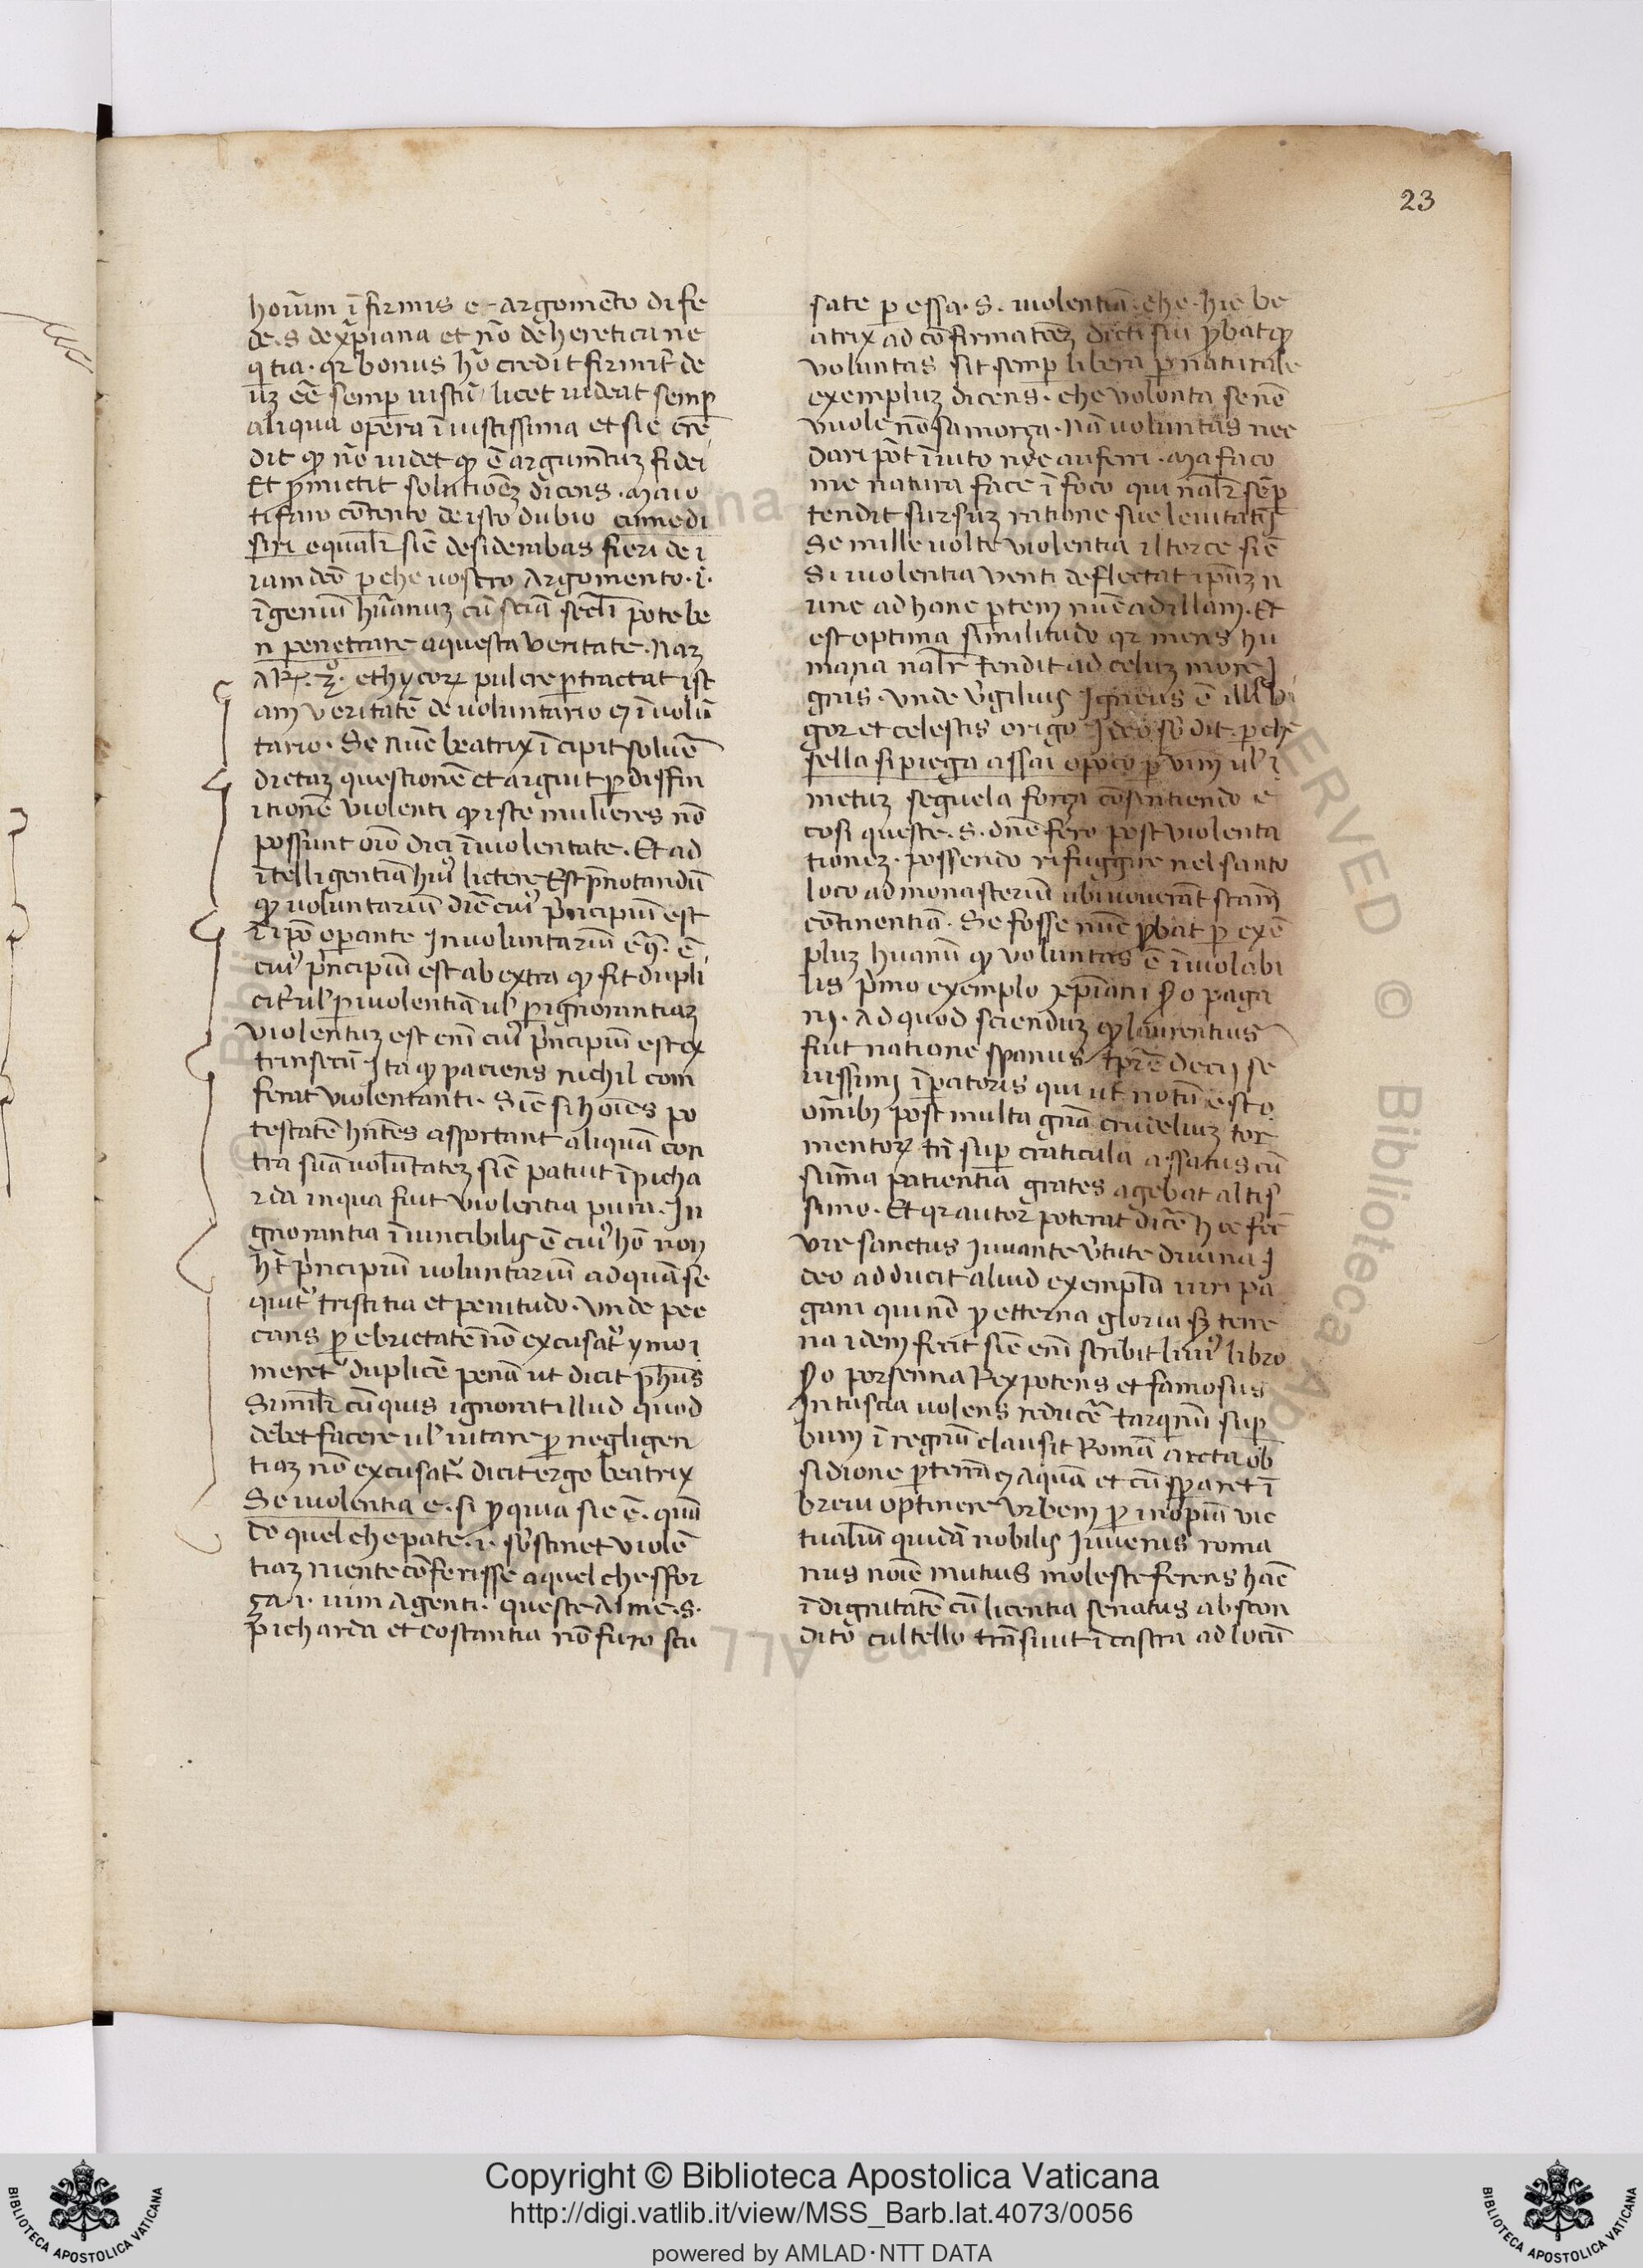 23
horum ī firmis e· argomēto di fe
de·s· de xp̄iana et nō de hereticha ne
q̄tia· qr bonus hō credit firmit̄ de
uȝ eē semp̄ iustū licet uideat semp̄
aliqua opera īiustissima et sic cre
dit qđ nō uidet qđ ē argumtūȝ fidei
Et p̄mictit solutionēȝ dicens· ma io
ti faro contento de isto dubio comme di
siri equalr̄ sic̄ desiderabas fieri de i
iam deō perche uostro Argomento· i·
īgeniuȝ hūanuȝ cū sciā pote be
n penetrare a questa ueritate· Naȝ
AR· 3º· ethycorȝ pulcre p̱tractat ist
am ueritatē de uoluntario et īuolū
tario· Se nūc beatrix īcipit soluē
dictaȝ questionē et arguit p̱ diffin
itionē uiolenti qđ iste mulieres nō
possunt oīo dici īuiolentate· Et ad
ītelligentiā huiꝰ lictere Est p̄notandū
qđ uoluntariū dīc̄ cuiꝰ p̄ncipiū est
ī ip̄o operante Inuoluntariū ē
cuiꝰ p̄ncipiū est ab extra qđ fit dupli
cit̄ ul̄ p̱ uiolentiā ul̄ p̱ ignorantiaȝ
uiolentuȝ est enī cuiꝰ p̄ncipiū est ex
trinsecū· Ita qđ paciens nichil con
ferat uiolentanti· Sic̄ si hoīes po
testatē hn̄tes asportant aliquā con
tra suā uoluntateȝ sic̄ patuit ī picha
rda in qua fuit uiolentia pura· In
gnorantia īuincibilis ē cuiꝰ hō non
h̄t p̄ncipiū uoluntariū ad quā se
quit̄ tristitia et penitudo· unde pec
cans p̱ ebrietatē nō excusat̄ ymo i
meret̄ duplicē penā ut dicit ph̄us
Similr̄ cū quis ignorat illud quod
debet facere ul̄ uitare p̱ negligen
tiaȝ nō excusat̄ dicit ergo beatrix
Se uiolentia e· si p̱ quia sic ē· quā
do quel che pate·i· sustinet uiolē
tiaȝ niente cōferisse a quel che sfor
ça·i· uim Agenti· queste Alme·s·
picharda et costantia nō furo scu
sate p̱ essa· s· uiolentiā· che· hic be
atrix ad cōfirmatōeȝ dicti sui p̱bat qđ
uoluntas sit semp̱ libera p̱ naturale
exempluȝ dicens· che uolonta se nō
uuole nō samorza· Nā uoluntas nec
dari pōt īuito nec auferri· Ma fa co
me natura face ī foco qui nālr̄ semp̱
tendit sursuȝ ratione sue leuitatis
Se mille uolte uiolentia il torce sic̄
Si uiolentia uenti deflectat ipsuȝ n
unc ad hanc p̱tem nūc ad illam· Et
est optima similitudo qr mens hu
mana nālr̄ tendit ad celuȝ more i
gnis· unde uirgilius Igneus ē illis ui
gor et celestis origo Ideo subdit· perche
sella si piega assai o poco p̱ uim ul̄
metuȝ seguela força cōsentiendo e
cosi queste·s· dnē fero post uiolenta
tioneȝ· possendo rifuggire nel santo
loco ad monasteriū ubi uouerant scām
cōtinentiā· Se fosse nūc p̱bat p̱ exē
pluȝ humanū qđ uoluntas ē īuiolabi
lis p̄mo exemplo xp̄iani 2o paga
nj· Ad quod scienduȝ qđ laurentius
fuit natione spanus tp̄re decij se
uissimi īperatoris qui ut notū est
omībȝ post multa gn̄a crudeliuȝ tor
mentorȝ tn̄ sup̱ craticula assatus cū
summa patientia grates agebat altis
simo· Et qr autor poterat dicē hoc fec̄
uir sanctus Iuuante uirtute diuina I
deo adducit aliud exemplū uiri pa
gani qui nō p̱ etterna gloria sȝ terre
na idem fecit sic̄ enī scribit liuiꝰ libro
2o porsenna Rex potens et famosus
In tuscia uolens reducē tarquinū sup̱
bum ī regnū clausit Romā arcta ob
sidione p̱ terrā et aquā et cū speraret ī
breui optinere urbem p̱ inopiā uic
tualiū quidā nobilis Iuuenis roma
nus noīe mutius moleste ferens hāc
īdignitatē cū licentia senatus abscon
dito cultello trāsiuit ī castra ad locū
Copyright © Biblioteca Apostolica Vaticana
http://digi.vatlib.it/view/MSS_Barb.lat.4073/0056
powered by AMLAD·NTT DATA
BIBLIOTECA APOSTOLICA VATICANA
BIBLIOTECA APOSTOLICA VATICANA